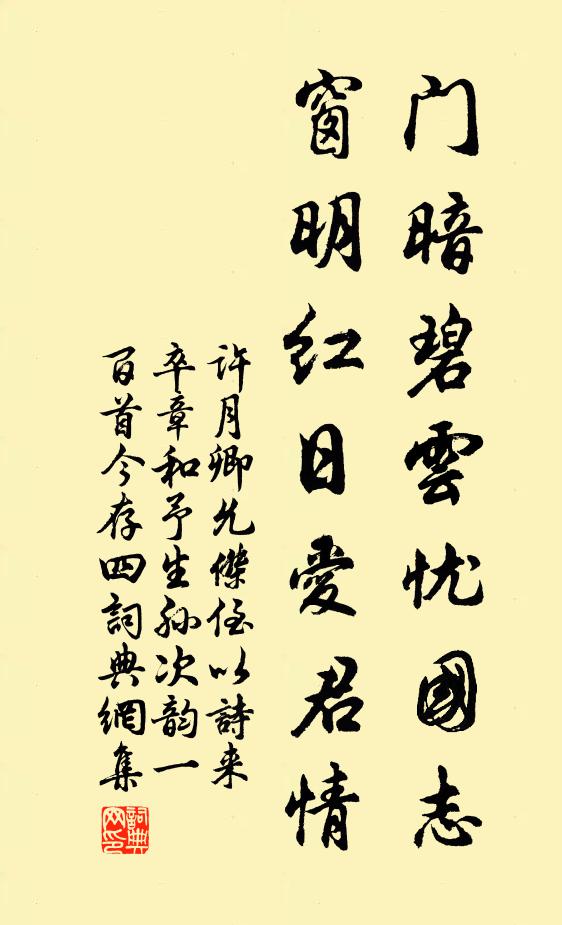 门暗碧雲忧國志
窗明红日愛君情
许月卿允傑侄以詩来
卒章和予生孙次韵一
百首今存四詞典網集
詞典网印